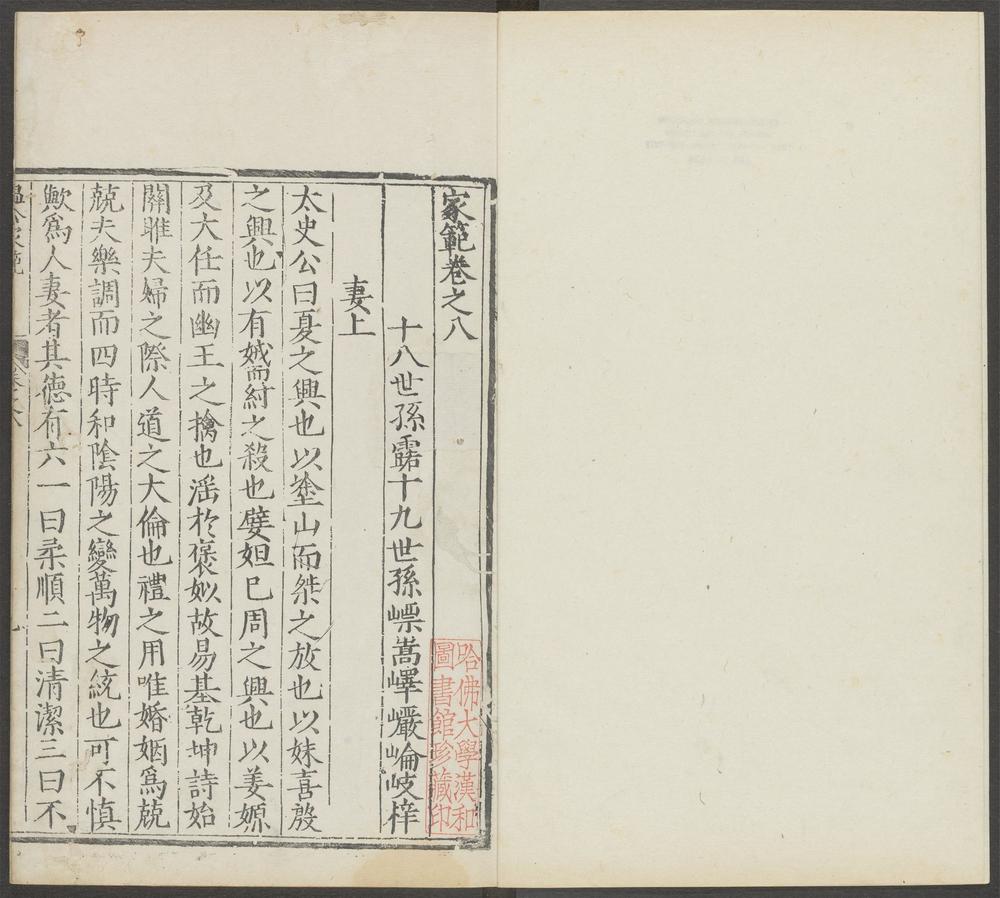 家範卷之八
十八世孫露十九世孫嘌嵩嶧巖崙岐梓
妻上
太史公曰夏之興也以塗山而桀之放也以妺喜殷
之興也以有娀而紂之殺也嬖妲巳周之興也以姜嫄
及大任而幽王之擒也滛於褒姒故易基乾坤詩始
關雎夫婦之際人道之大倫也禮之用唯婚姻爲兢
兢夫樂調而四時和陰陽之變萬物之統也可不慎
歟爲人妻者其德有六一曰柔順二曰清潔三曰不
哈佛大學漢和
圖書館珍藏印